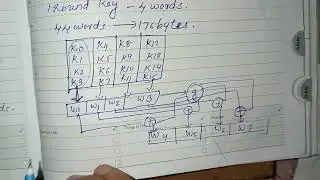 1 Round Key — 4 words.
44 words → 176 bytes.
K0 K4 K8 K12
K1 K5 K9 K13
K2 K6 K10 K14
K3 K7 K11 K15
W0 W1 W2 W3 g
W4 W5 W6 W7